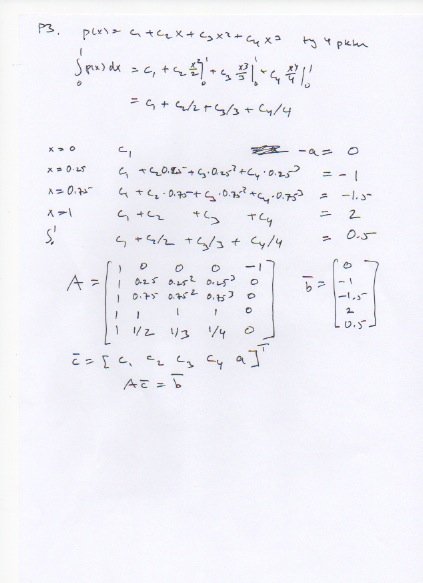 P3. p(x) = c₁ + c₂x + c₃x² + c₄x³ ty 4 pkter
∫₀¹ p(x) dx = c₁ + c₂ x²/2 |₀¹ + c₃ x³/3 |₀¹ + c₄ x⁴/4 |₀¹
= c₁ + c₂/2 + c₃/3 + c₄/4
x=0 c₁ -a = 0
x=0.25 c₁ + c₂0.25 + c₃·0.25² + c₄·0.25³ = -1
x=0.75 c₁ + c₂·0.75 + c₃·0.75² + c₄·0.75³ = -1.5
x=1 c₁ + c₂ + c₃ + c₄ = 2
∫₀¹ c₁ + c₂/2 + c₃/3 + c₄/4 = 0.5
A = [ 1 0 0 0 -1
1 0.25 0.25² 0.25³ 0
1 0.75 0.75² 0.75³ 0
1 1 1 1 0
1 1/2 1/3 1/4 0 ]
b̄ = [ 0
-1
-1.5
2
0.5 ]
c̄ = [ c₁ c₂ c₃ c₄ a ]ᵀ
Ac̄ = b̄